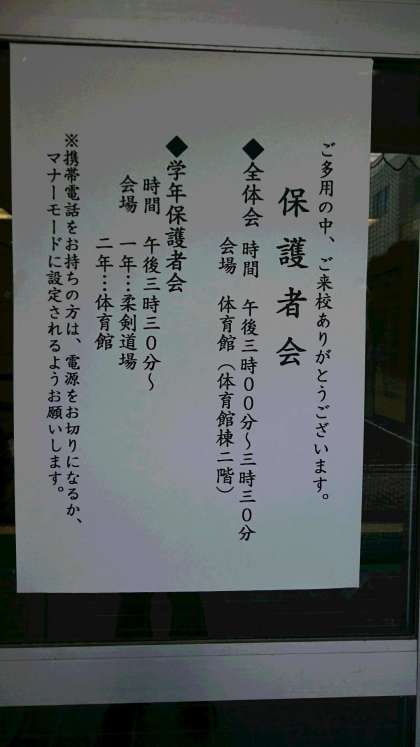 ご多用の中、ご来校ありがとうございます。
保護者会
◆全体会
時間　午後三時００分〜三時３０分
会場　体育館（体育館棟二階）
◆学年保護者会
時間　午後三時三０分〜
会場　一年…柔剣道場
二年…体育館
※携帯電話をお持ちの方は、電源をお切りになるか、
マナーモードに設定されるようお願いします。